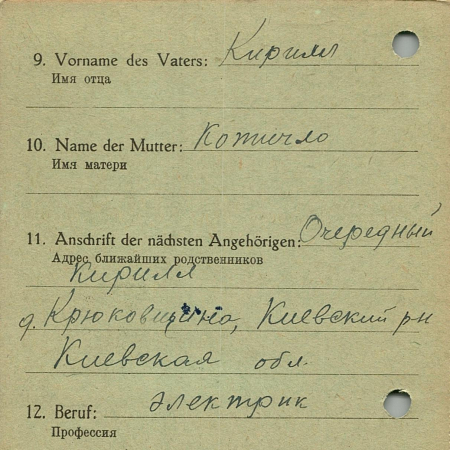 9. Vorname des Vaters: Кирилл
Имя отца
10. Name der Mutter: Котичло
Имя матери
11. Anschrift der nächsten Angehörigen: Очередный
Адрес ближайших родственников
Кирилл
д. Крюковщина, Киевский рн
Киевская обл.
12. Beruf: электрик
Профессия